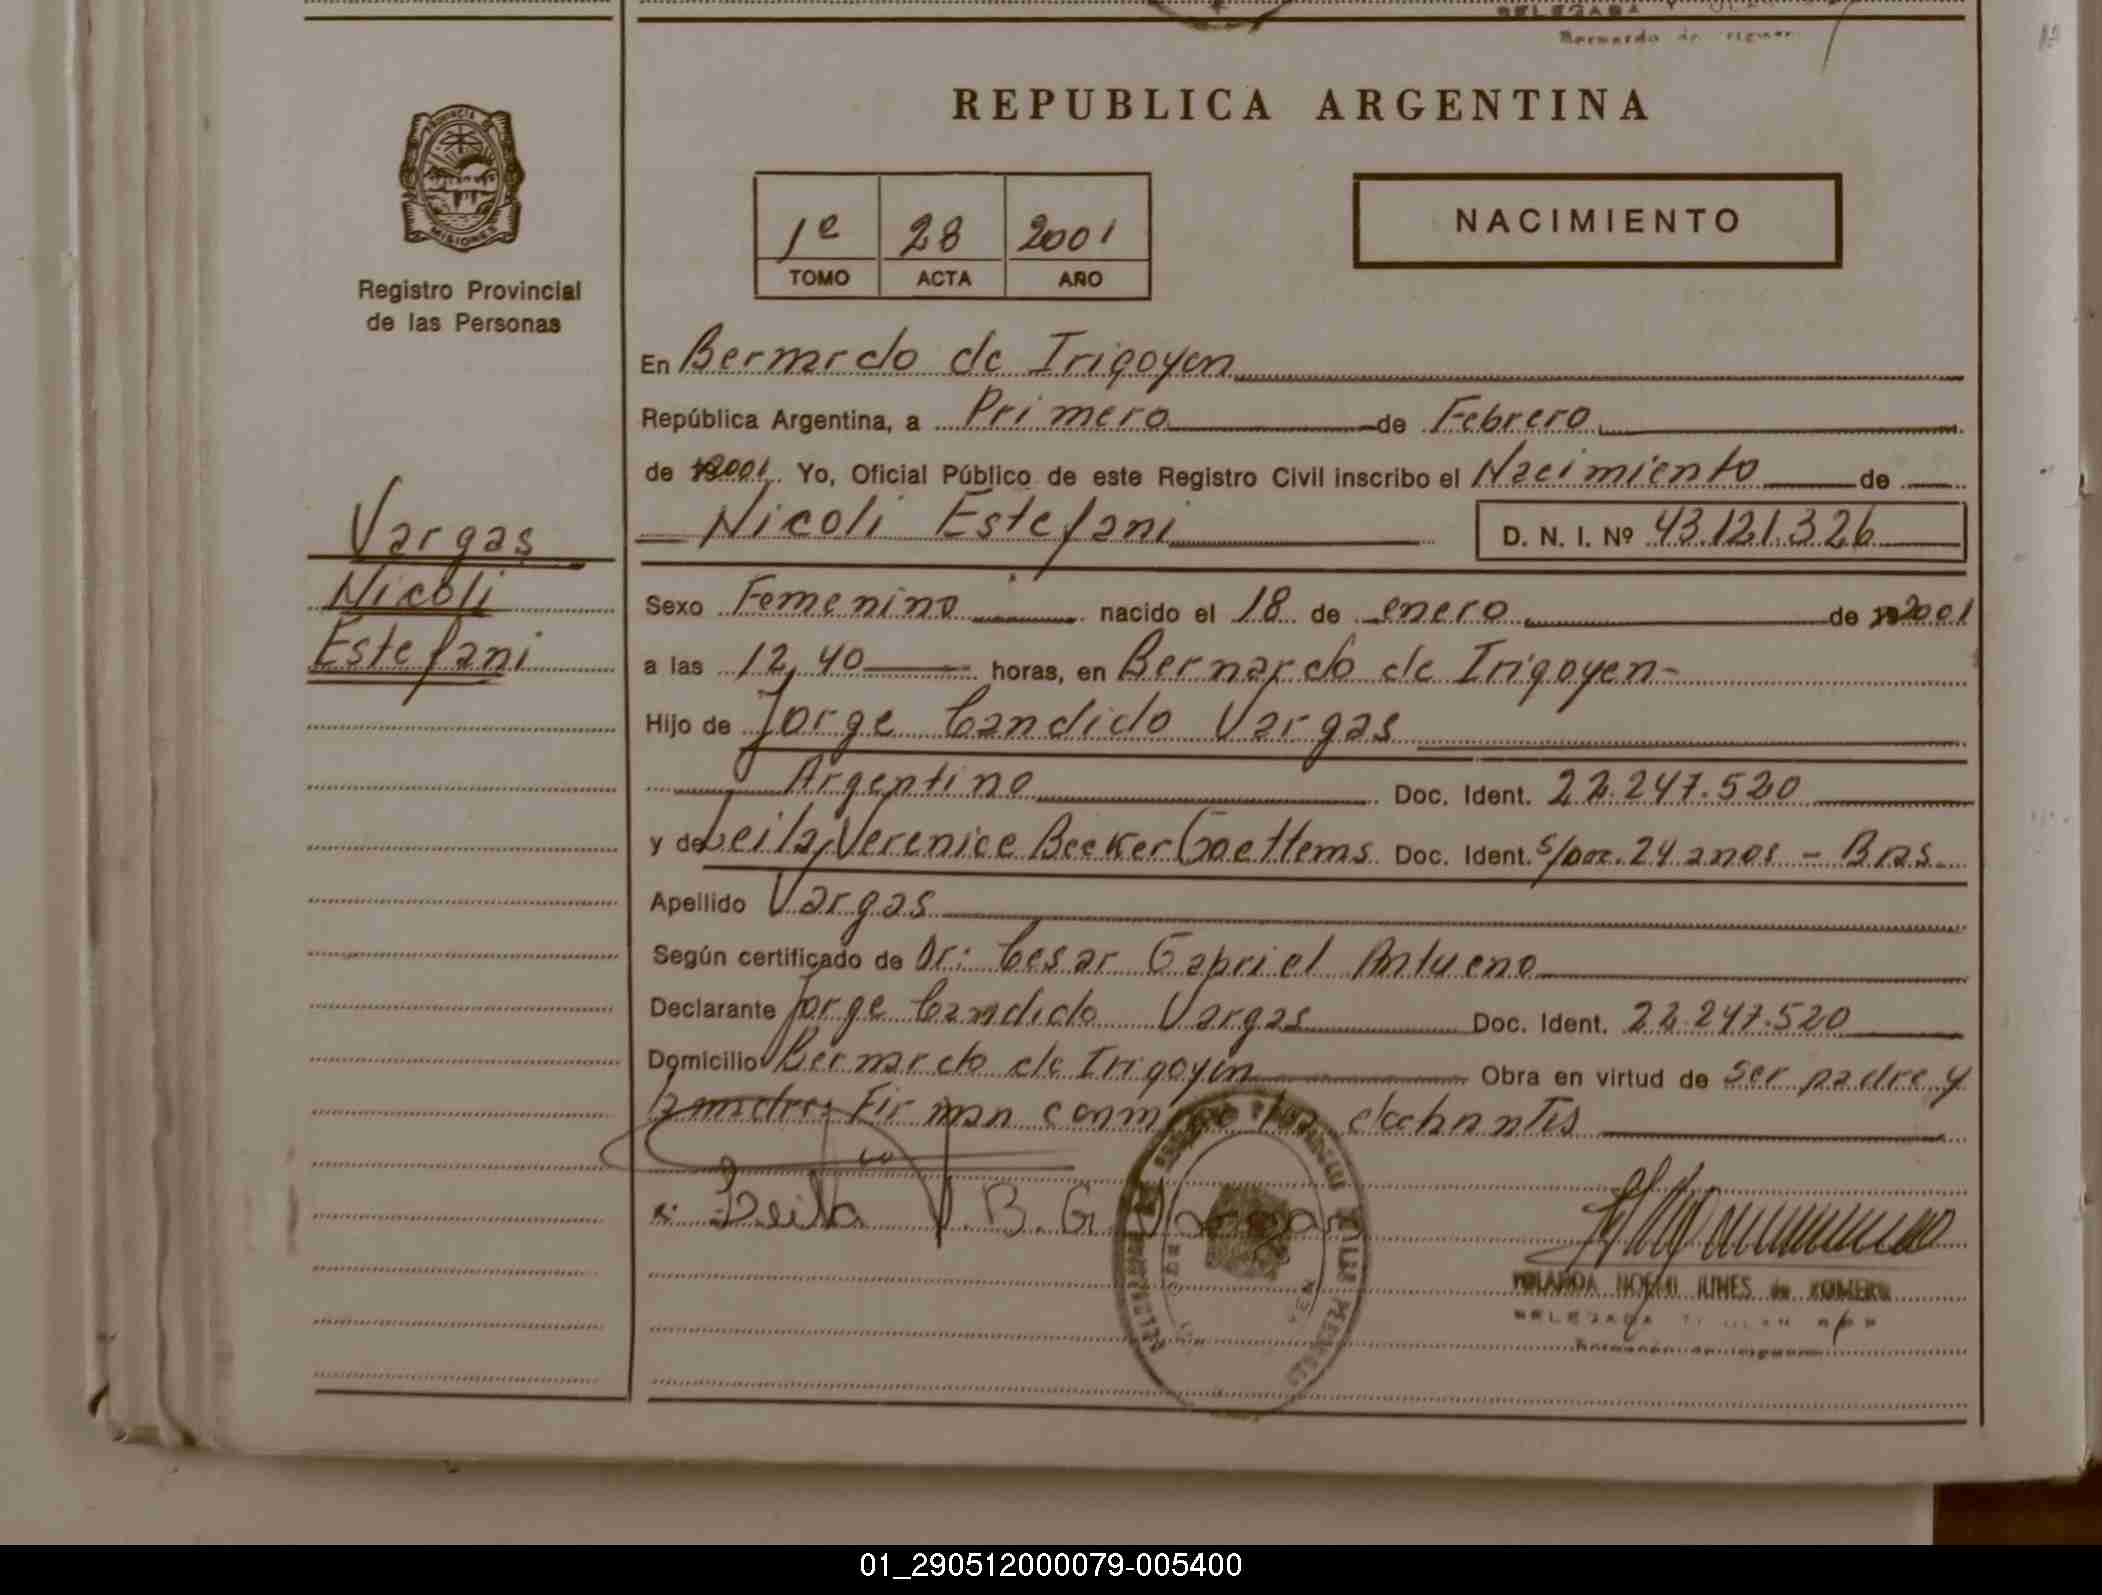 DELEGADA
Bernardo de
REPUBLICA ARGENTINA
PROVINCIA DE
MISIONES
Registro Provincial
de las Personas
1º 28 2001
TOMO ACTA AÑO
NACIMIENTO
En Bernardo de Irigoyen
República Argentina, a Primero de Febrero
de 2001. Yo, Oficial Público de este Registro Civil inscribo el Nacimiento de
Nicoli Estefani D. N. I. Nº 43.121.326
Vargas
Nicoli
Estefani
Sexo Femenino nacido el 18 de enero de 2001
a las 12,40 horas, en Bernardo de Irigoyen-
Hijo de Jorge Candido Vargas
Argentino Doc. Ident. 22.247.520
y de Leila Verenice Becker Goettems Doc. Ident. S/Doc. 24 anos - Bras.
Apellido Vargas
Según certificado de Dr: Cesar Gabriel Antueno
Declarante Jorge Candido Vargas Doc. Ident. 22.247.520
Domicilio Bernardo de Irigoyen Obra en virtud de ser padre y
Firman
Leila V. B. G. Vargas
YOLANDA NOEMI de ROMERO
DELEGADA TITULAR
01_290512000079-005400